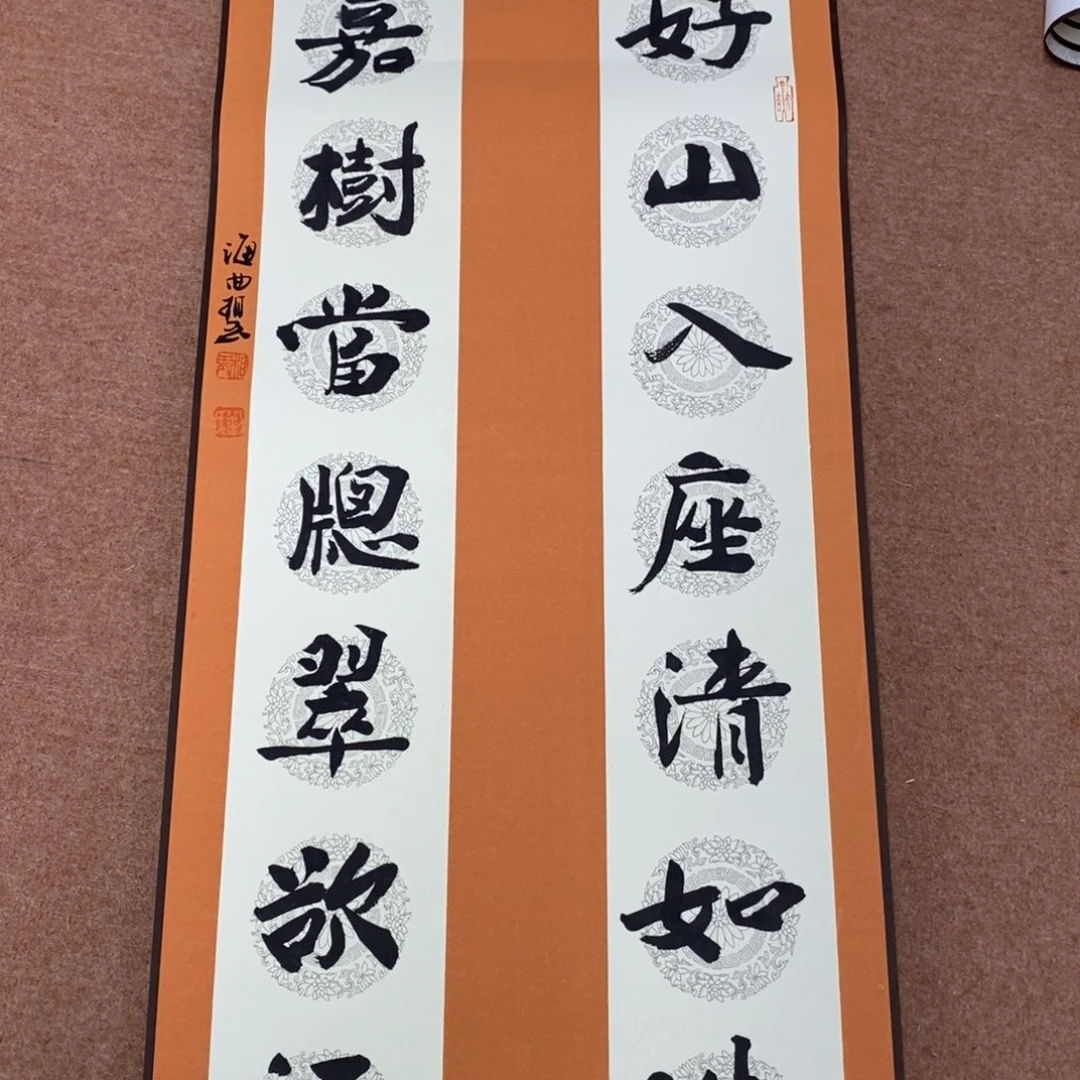 好山入座清如
嘉樹當牕翠欲
海曲